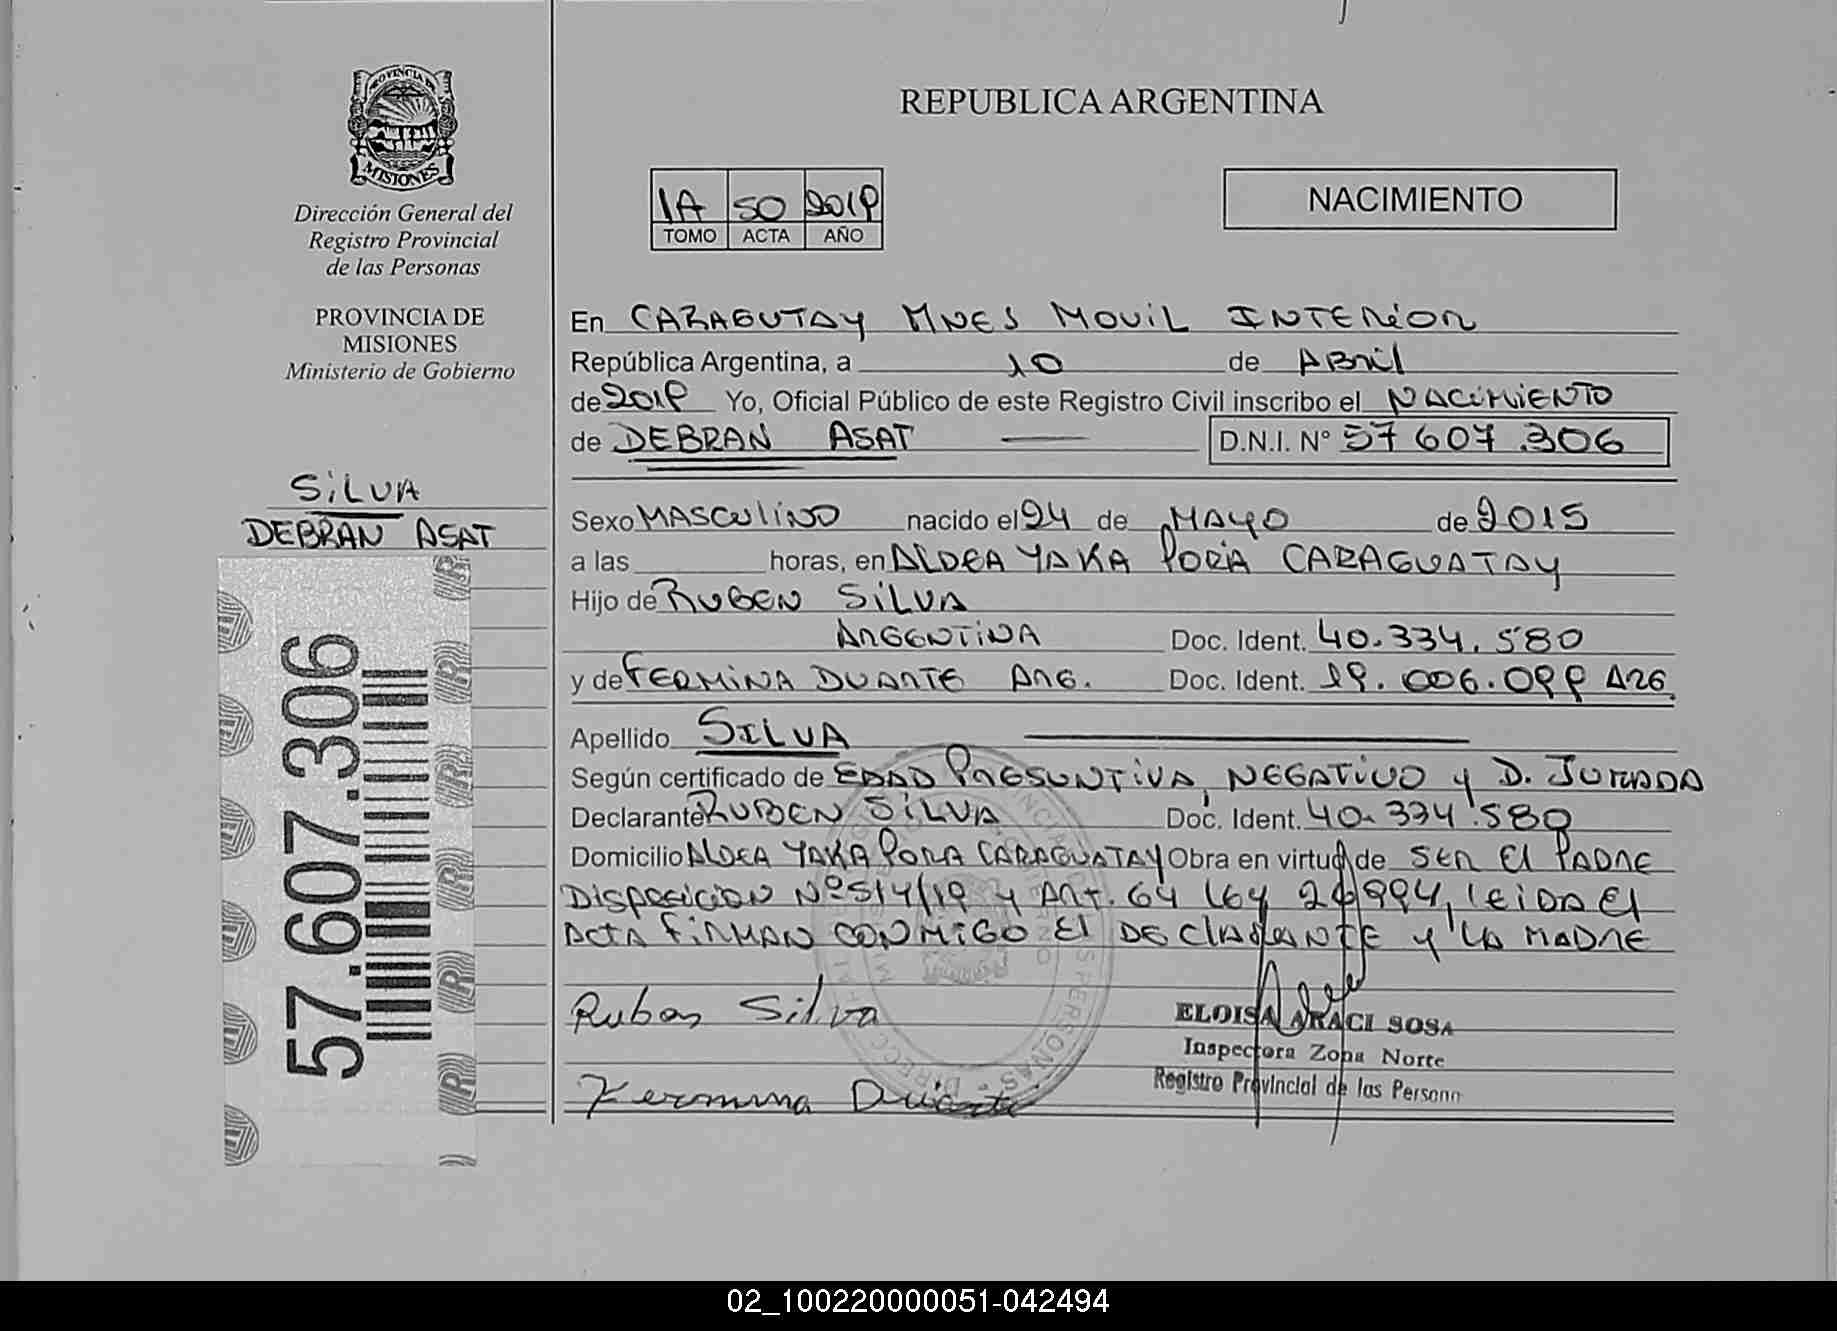 PROVINCIA DE
MISIONES
Dirección General del
Registro Provincial
de las Personas
PROVINCIA DE
MISIONES
Ministerio de Gobierno
SILVA
DEBRAN ASAT
57.607.306
REPUBLICA ARGENTINA
1A 50 2019
TOMO ACTA AÑO
NACIMIENTO
En CARAGUTAY MNES MOVIL INTERIOR
República Argentina, a 10 de ABRIL
de 2019 Yo, Oficial Público de este Registro Civil inscribo el NACIMIENTO
de DEBRAN ASAT D.N.I. N° 57 607.306
Sexo MASCULINO nacido el 24 de MAYO de 2015
a las horas, en ALDEA YAKA PORÁ CARAGUATAY
Hijo de RUBEN SILVA
ARGENTINA Doc. Ident. 40.334.580
y de FERMINA DUARTE ARG. Doc. Ident. 19.006.099 ARG.
Apellido SILVA
Según certificado de EDAD PRESUNTIVA, NEGATIVO y D. JURADA
Declarante RUBEN SILVA Doc. Ident. 40.334.580
Domicilio ALDEA YAKA PORA CARAGUATAY Obra en virtud de SER El PADRE
DISPOSICION Nº 514/19 y ART. 64 LEY 26994, LEIDA El
ACTA FIRMAN CONMIGO El DEClARANTE y LA MADRE
Ruben Silva
Fermina Duarte
ELOISA ARACI SOSA
Inspectora Zona Norte
Registro Provincial de las Person
02_100220000051-042494